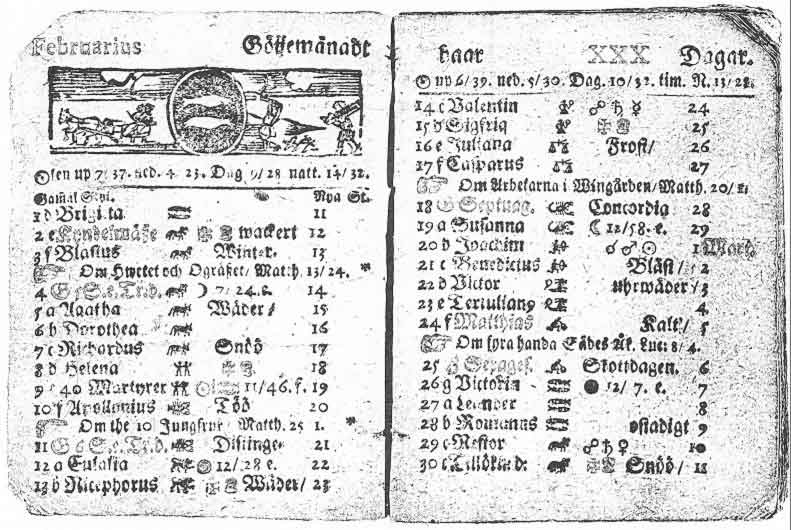 Februarius Göijemånadt
Solen up 7/37. ned. 4 23. Dag 9/28 natt. 14/32.
Gamal Styl. Nya St.
1 d Brigita 11
2 e Kyndelmässe wackert 12
3 f Blasius Winter. 13
Om Hwetet och Ogräset/ Matth. 13/24. *
4 G 7/24.e. 14
5 a Agatha Wäder/ 15
6 b Dorothea 16
7 c Richardus Snöö 17
8 d Helena 18
9 e 40 Martyrer 11/46.f. 19
10 f Apollonius Töö 20
Om the 10 Jungfrur Matth. 25 1. *
11 G Distinge 21
12 a Eulalia 12/28 e. 22
13 b Nicephorus Wäder/ 23
haar XXX Dagar.
☉ up 6/39. ned. 5/30. Dag. 10/32. tim. N. 13/28.
14 c Valentin ☍ ♄ ☿ 24
15 d Sigfrid 25
16 e Juliana Frost/ 26
17 f Casparus 27
Om Arbetarna i Wingården/ Matth. 20/1.
18 G Septuag. Concordia 28
19 a Susanna ☾ 12/58. e. 29
20 b Joachim ☌ ♂ ☉ 1 Mart.
21 c Benedictus Bläst/ 2
22 d Victor uhrwäder/ 3
23 e Tertulianq 4
24 f Matthias Kalt/ 5
Om fyra handa Sädes Åk. Luc: 8/4.
25 Sexages. Skottdagen. 6
26 g Victorin ● 12/7. e. 7
27 a Leander 8
28 b Romanus ostadigt 9
29 c Nestor ☍ ♄ ♀ 10
30 c Snöö/ 11